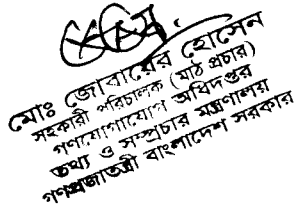 মোঃ জোবায়ের হোসেন
সহকারী পরিচালক (মাঠ প্রচার)
গণযোগাযোগ অধিদপ্তর
তথ্য ও সম্প্রচার মন্ত্রণালয়
গণপ্রজাতন্ত্রী বাংলাদেশ সরকার